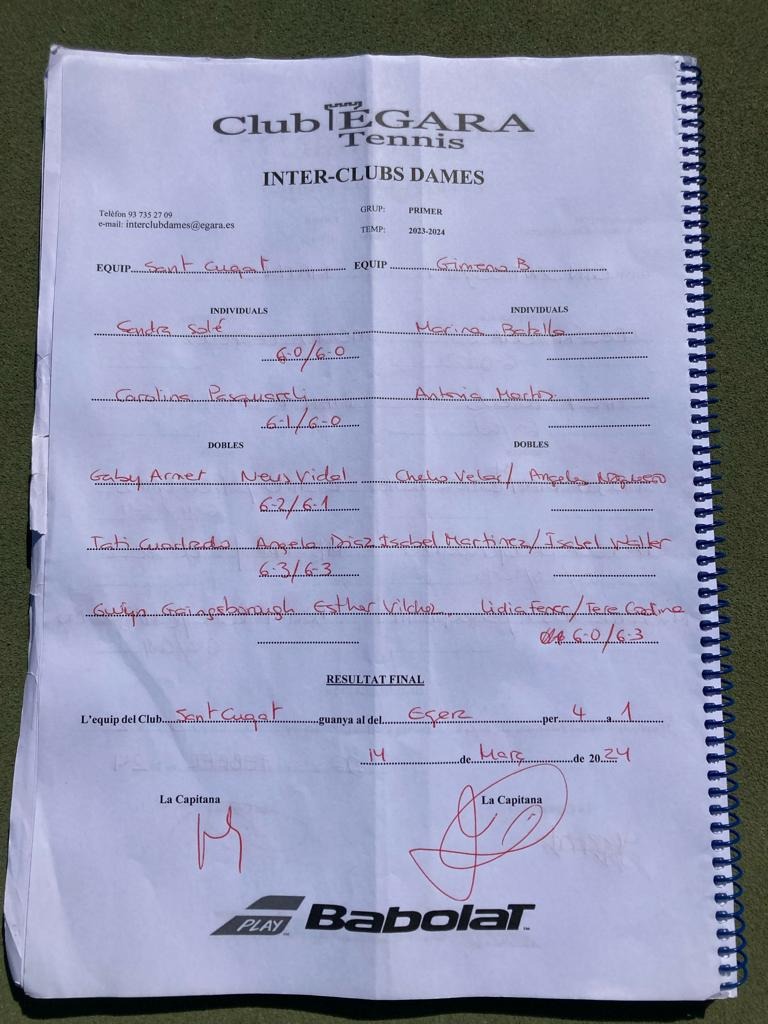 Club ÉGARA
Tennis
INTER-CLUBS DAMES
Telèfon 93 735 27 09
e-mail: interclubdames@egara.es
GRUP: PRIMER
TEMP: 2023-2024
EQUIP Sant Cugat EQUIP Gimeno B
INDIVIDUALS INDIVIDUALS
Sandra Solé Marina Batalla
6-0/6-0
Carolina Pasquareli Antonia Martos
6-1/6-0
DOBLES DOBLES
Gaby Armet Neus Vidal Chelo Velar/ Angeles
6-2/6-1
Tati Cuadrado Angela Diaz Isabel Martinez/Isabel Walter
6-3/6-3
Gwyn Gaingsborough Esther Vilchez Lidia Ferrer/Tere Cardine
6-0/6-3
RESULTAT FINAL
L'equip del Club Sant Cugat guanya al del Egara per 4 a 1
14 de Març de 2024
La Capitana La Capitana
PLAY BaboLaT